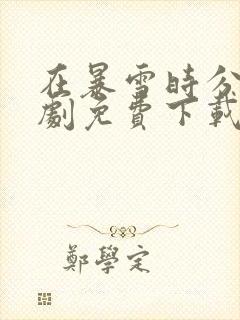 在暴雪時分
劇免費下載
鄭學定